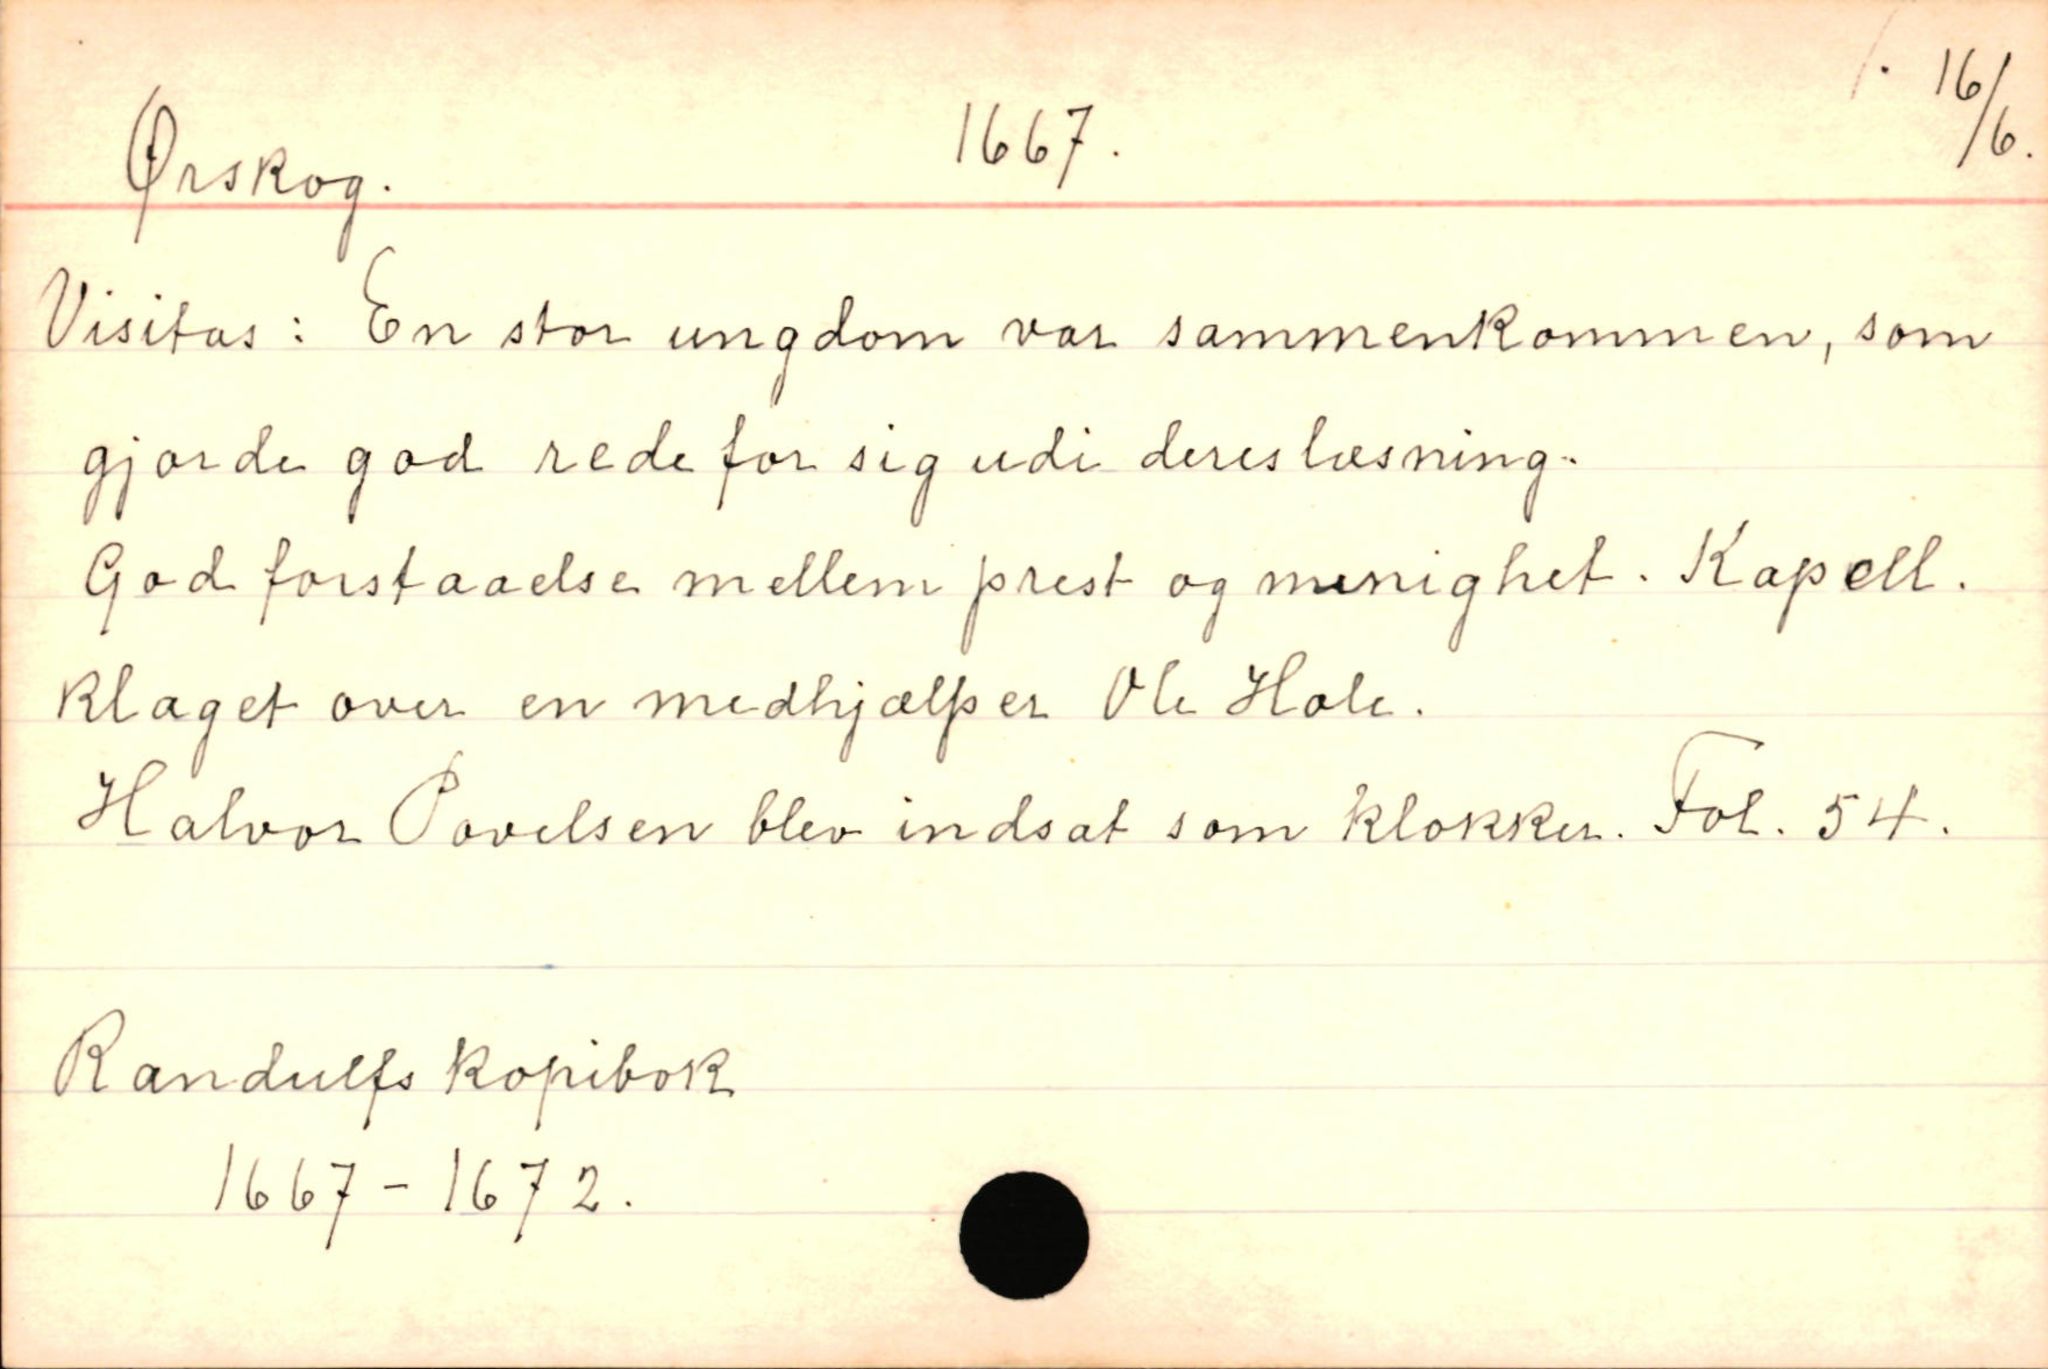 Ørskog. 1667. 16/6.
Visitas: En stor ungdom var sammenkommen, som
gjorde god rede for sig udi deres læsning.
God forstaaelse mellem prest og menighet. Kapell.
klaget over en medhjælper Ole Hole.
Halvor Povelsen blev indsat som klokker. Fol. 54.
Randulfs kopibok
1667-1672.